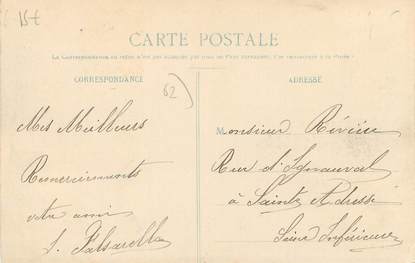 15€
CARTE POSTALE
La Correspondance au recto n'est pas acceptée par tous les Pays étrangers, (Se renseigner à la Poste)
CORRESPONDANCE
ADRESSE
62
Mes Meilleurs
Remerciements
votre ami
Monsieur
Rue d'
à Sainte Adresse
Seine Inférieure